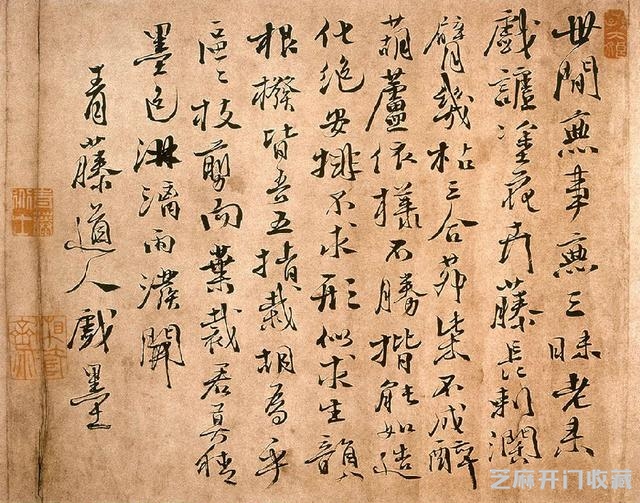 世間無事無三昧老來
戲謔塗花卉藤長刺闊
臂幾枯三合茅柴不成醉
葫蘆依樣不勝揩能如造
化絕安排不求形似求生韻
根撥皆吾五指栽胡為乎
區〻枝剪而葉裁君莫猜
墨色淋漓雨潑開
青藤道人戲墨
芝麻开门收藏